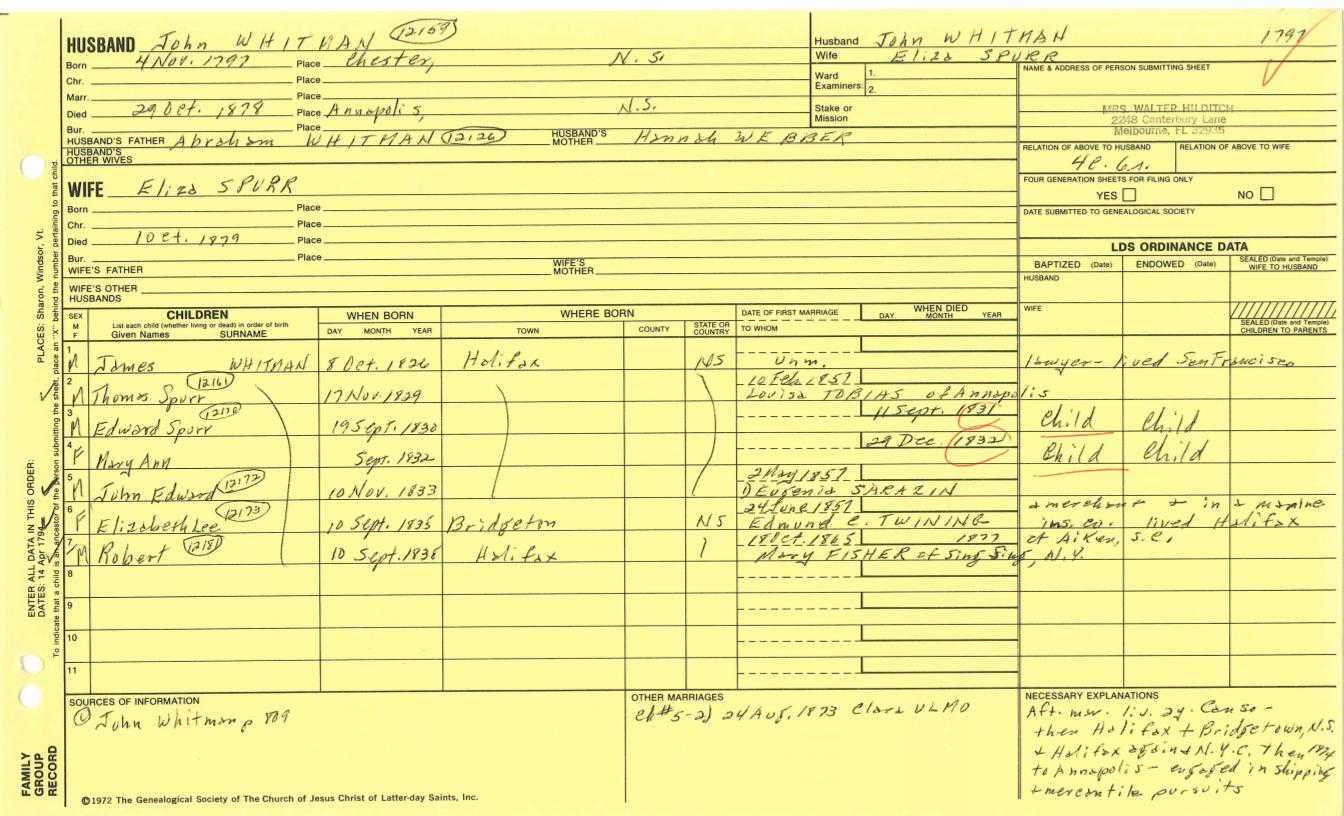 HUSBAND John WHITMAN (12159)
Born 4 Nov. 1797 Place Chester, N.S.
Chr. Place
Marr. Place
Died 29 Oct. 1878 Place Annapolis, N.S.
Bur. Place
HUSBAND'S FATHER Abraham WHITMAN (12126) HUSBAND'S MOTHER Hannah WEBBER
HUSBAND'S OTHER WIVES
Husband John WHITMAN 1797
Wife Eliza SPURR
Ward Examiners: 1.
2.
Stake or Mission
NAME & ADDRESS OF PERSON SUBMITTING SHEET
MRS. WALTER HILDITCH
2248 Canterbury Lane
Melbourne, FL 32935
RELATION OF ABOVE TO HUSBAND RELATION OF ABOVE TO WIFE
FOUR GENERATION SHEETS FOR FILING ONLY
YES NO
DATE SUBMITTED TO GENEALOGICAL SOCIETY
WIFE Eliza SPURR
Born Place
Chr. Place
Died 1 Oct. 1879 Place
Bur. Place
WIFE'S FATHER WIFE'S MOTHER
WIFE'S OTHER HUSBANDS
LDS ORDINANCE DATA
BAPTIZED (Date) ENDOWED (Date) SEALED (Date and Temple) WIFE TO HUSBAND
HUSBAND
WIFE
SEALED (Date and Temple) CHILDREN TO PARENTS
SEX M F CHILDREN WHEN BORN WHERE BORN DATE OF FIRST MARRIAGE WHEN DIED
List each child (whether living or dead) in order of birth
Given Names SURNAME DAY MONTH YEAR TOWN COUNTY STATE OR COUNTRY TO WHOM DAY MONTH YEAR
1 M James WHITMAN 8 Oct. 1826 Halifax NS Unm. lawyer - lived San Francisco
2 M Thomas Spurr (12161) 17 Nov. 1829 10 Feb. 1857 Louisa TOBIAS of Annapolis
3 M Edward Spurr (12170) 19 Sept. 1830 11 Sept. 1831 Child Child
4 F Mary Ann Sept. 1832 29 Dec. 1832 Child Child
5 M John Edward (12172) 10 Nov. 1833 2 May 1857 1) Eugenia SARAZIN
6 F Elizabeth Lee (12173) 10 Sept. 1835 Bridgeton NS 24 June 1857 Edmund C. TWINING a merchant & in a marine ins. co. lived Halifax
7 M Robert (12181) 10 Sept. 1838 Halifax 18 Oct. 1865 1877 of Aiken, S.C.
Mary FISHER of Sing Sing, N.Y.
8
9
10
11
SOURCES OF INFORMATION
John Whitman p 889
OTHER MARRIAGES
Ch #5-2) 24 Aug. 1873 Clara ULMO
NECESSARY EXPLANATIONS
Aft. mar. liv. at Canso -
then Halifax + Bridgetown, N.S.
+ Halifax again + N.Y.C. then 1874
to Annapolis - engaged in shipping
+ mercantile pursuits
©1972 The Genealogical Society of The Church of Jesus Christ of Latter-day Saints, Inc.
FAMILY GROUP RECORD
ENTER ALL DATA IN THIS ORDER:
DATES: 14 Apr 1794 PLACES: Sharon, Windsor, Vt.
To indicate that a child is an ancestor of the person submitting the sheet, place an "X" behind the number pertaining to that child.